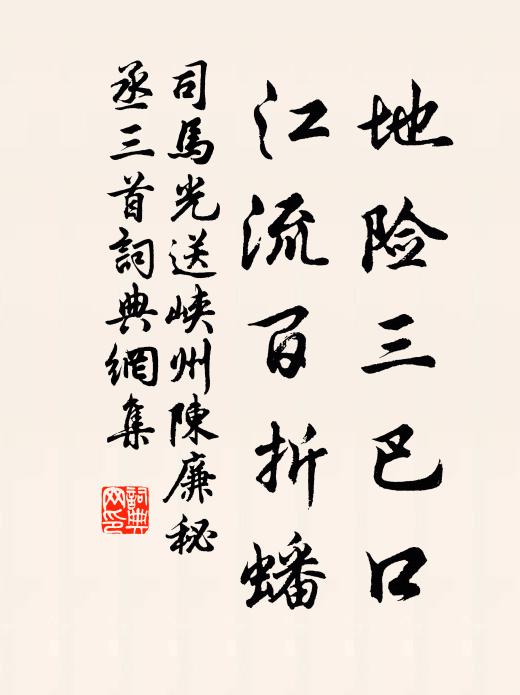 地险三巴口
江流百折蟠
司馬光送峡州陳廉秘
丞三首詞典網集
詞典网印